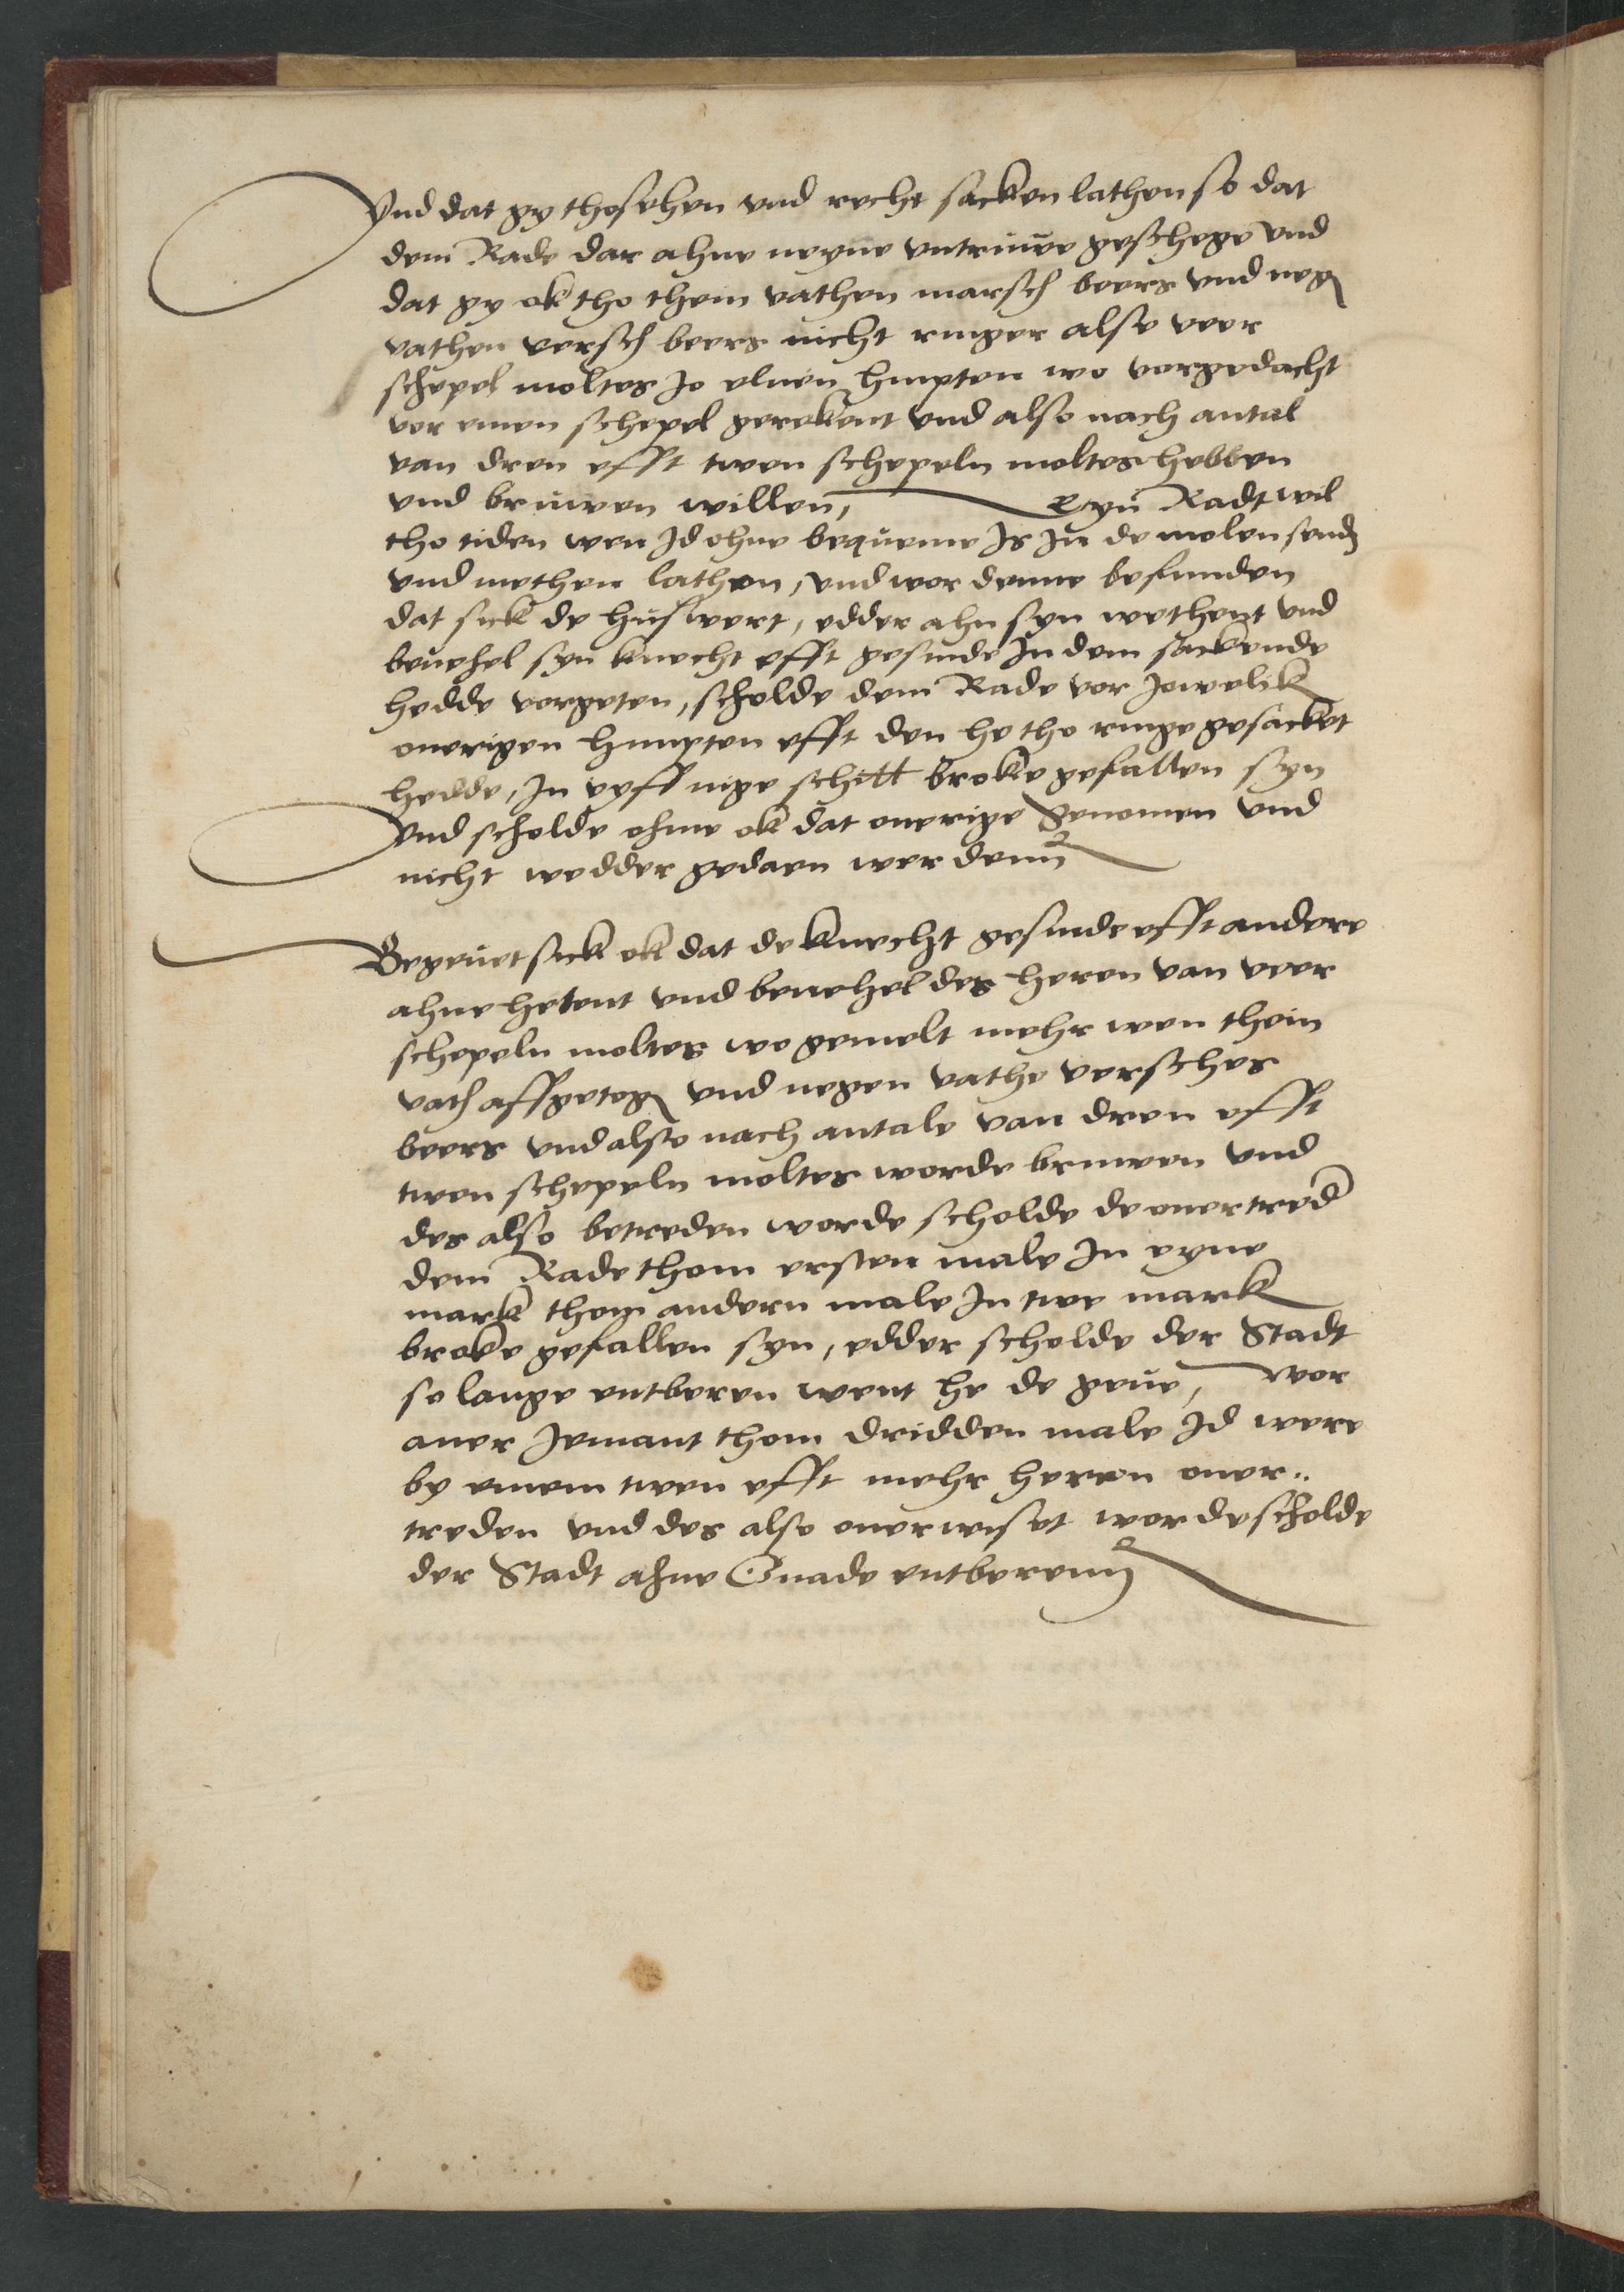 Vnd dat gy thosehen vnd recht sacken lathen so dat
dem Rade dar ahne neyne vntruwe geschege vnd
dat gy ok tho thein vathen marsch beers vnd neg
vathen versch beers nicht ringer alse veer
schepel moltes Jo eluen himpten wo vorgedacht
vor einen schepel gerekent vnd also nach antal
van dren efft twen schepeln moltes hebben
vnd bruwen willen, Eyn Radt wil
tho tiden wen Jd ohne bequeme Js Jn de molen send
vnd methen lathen, vnd wor denne befunden
dat sick de huswert, edder ahn syn wethent vnd
beuehel syn knecht efft gesinde Jn dem sackende
hedde vorgeten, scholde dem Rade vor Jowelik
ouerigen himpten efft den he tho ringe gesacket
hedde, Jn vyff nige schill broke gefallen syn
Vnd scholde ohme ok dat ouerige genomen vnd
nicht wedder gedaen werdenn
Begeuet sick ok dat de knecht gesinde efft andere
ahne hetent vnd beuehel des heren van veer
schepeln moltes wo gemelt mehr wen thein
vath affgetog vnd negen vathe versches
beers vnd also nach antale van dren efft
twen schepeln moltes worde bruwen vnd
des also betreden worde scholde de ouertred
dem Rade thom ersten male Jn eyne
mark thom andern male Jn twe mark
broke gefallen syn, edder scholde der Stadt
so lange entberen went he de geue, Wor
auer Jemant thom dridden male Jd were
by einem twen efft mehr herren ouer-
treden vnd des also ouerwiset worde scholde
der Stadt ahne Gnade entberenn